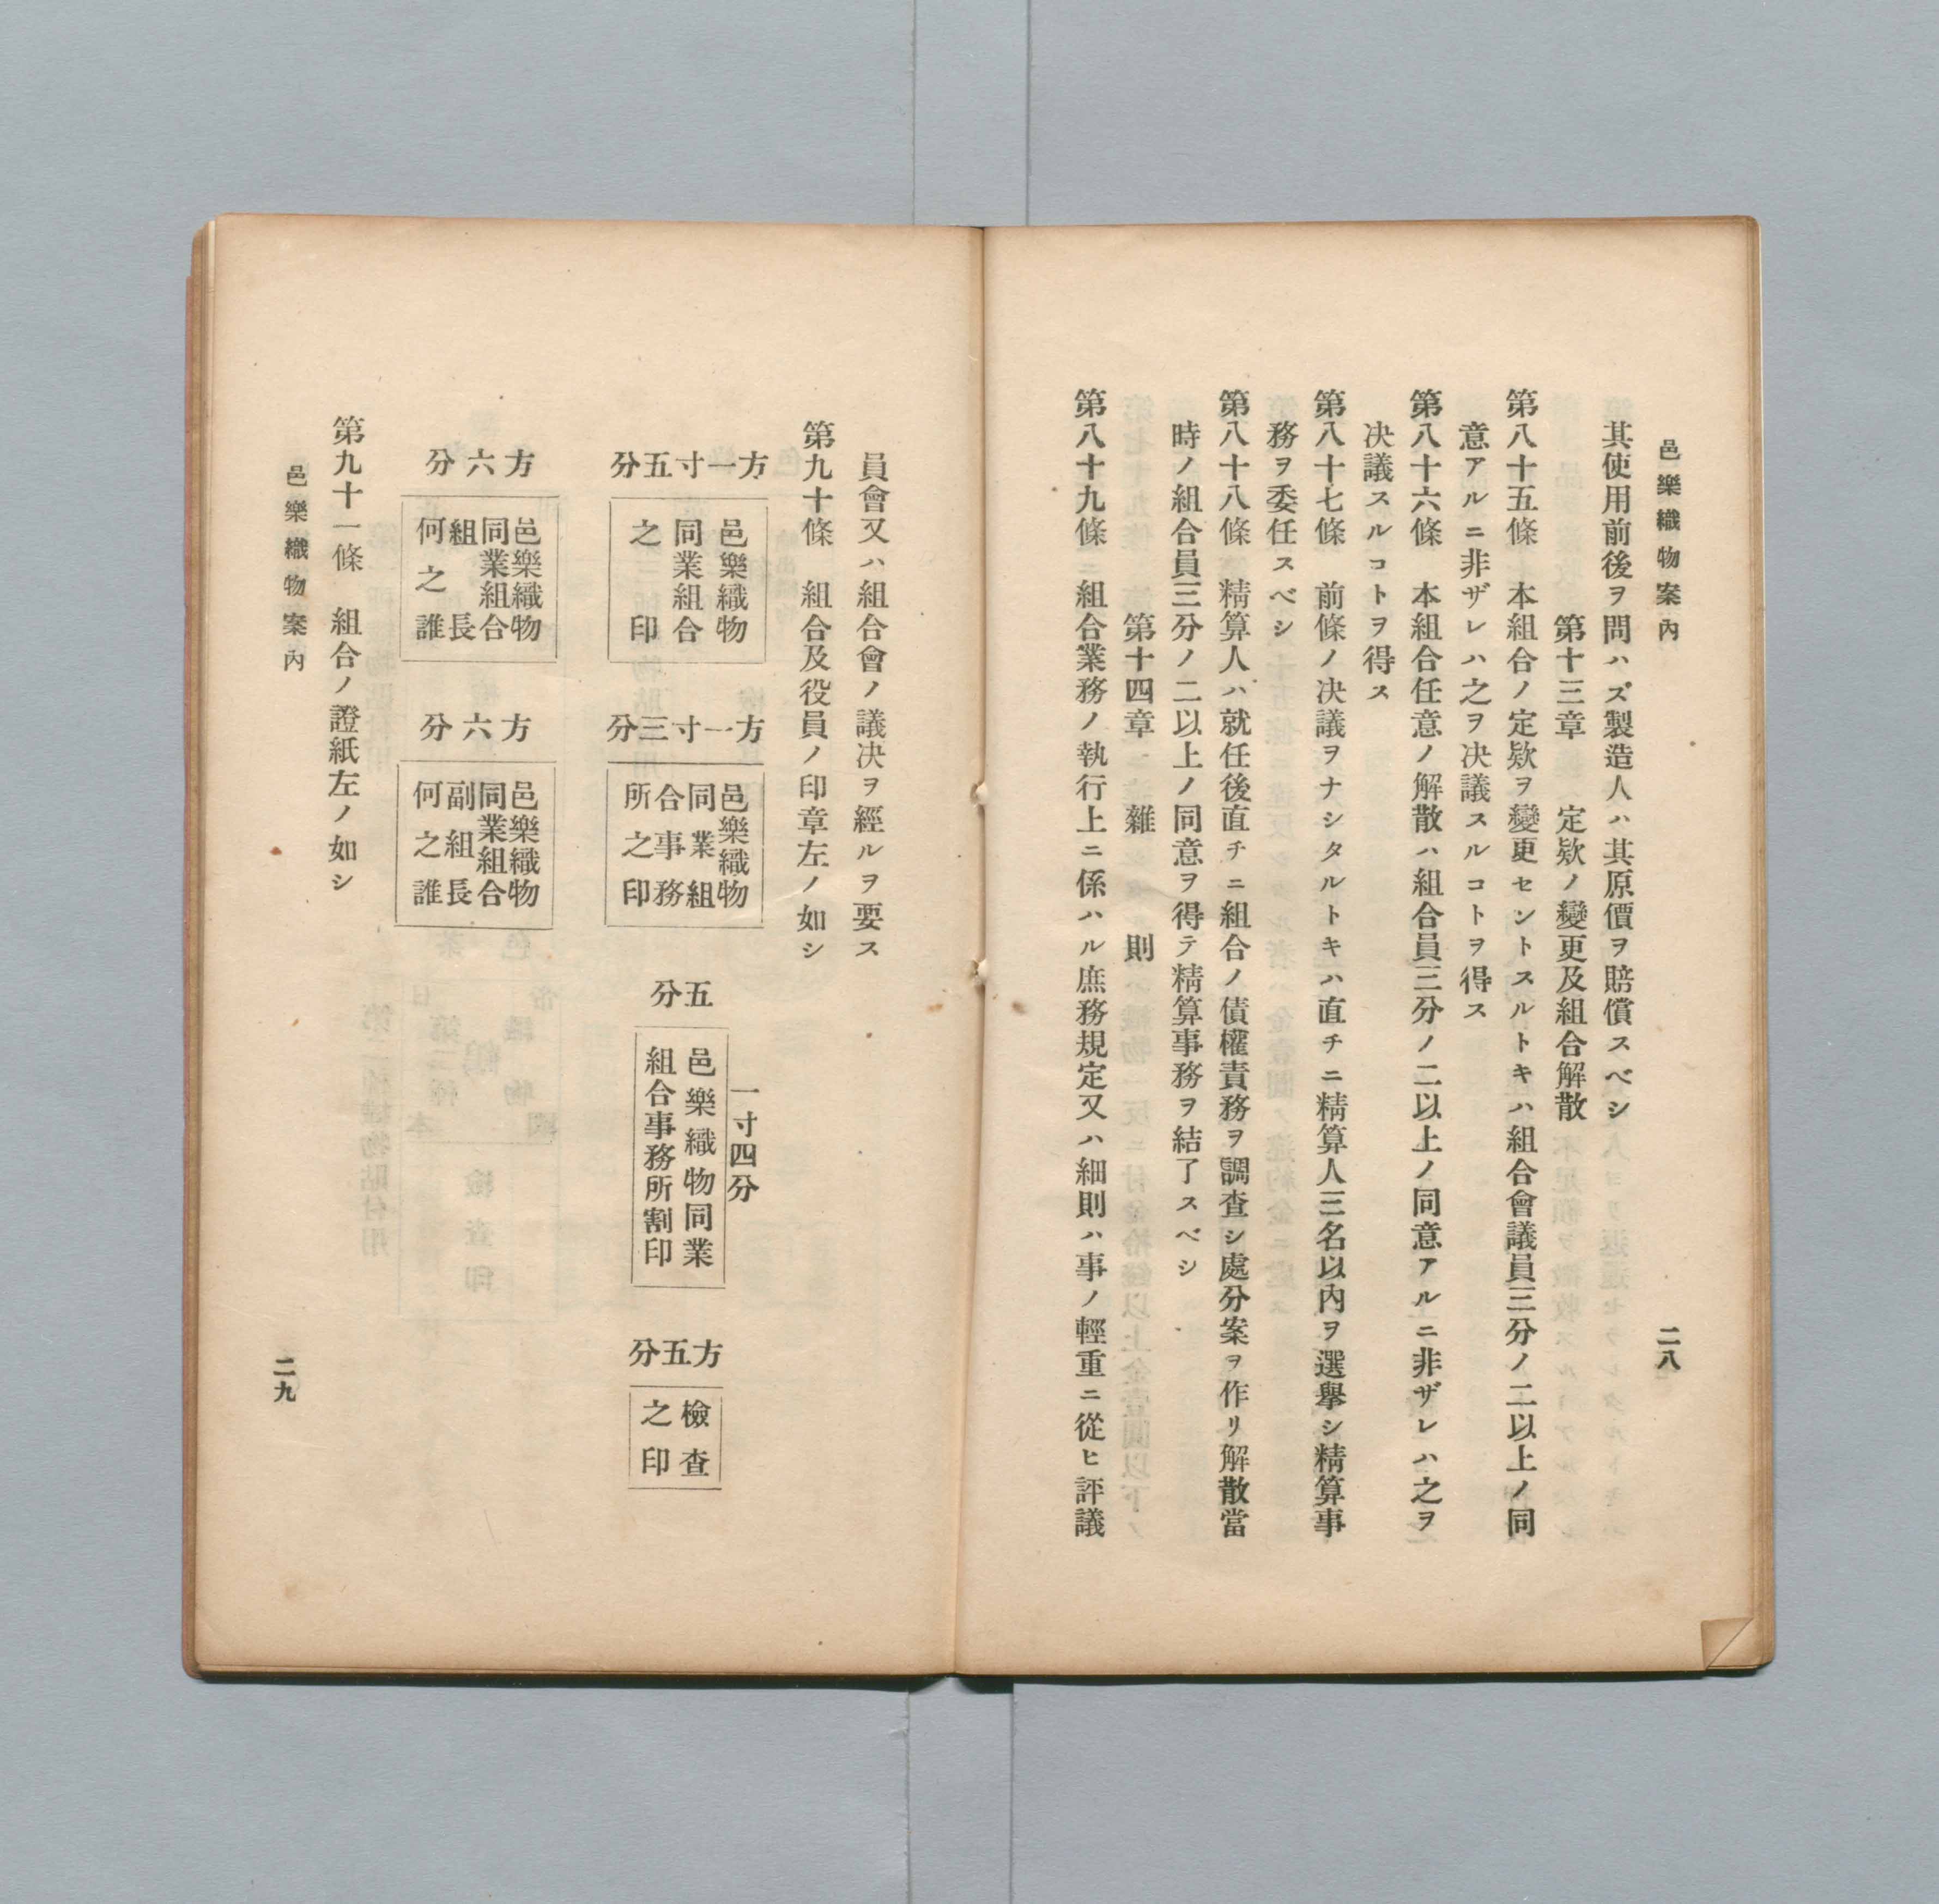 邑樂織物案內
二八
其使用前後ヲ問ハズ製造人ハ其原價ヲ賠償スベシ
第十三章　定欵ノ變更及組合解散
第八十五條　本組合ノ定欵ヲ變更セントスルトキハ組合會議員三分ノ二以上ノ同
意アルニ非ザレハ之ヲ决議スルコトヲ得ス
第八十六條　本組合任意ノ解散ハ組合員三分ノ二以上ノ同意アルニ非ザレハ之ヲ
决議スルコトヲ得ス
第八十七條　前條ノ决議ヲナシタルトキハ直チニ精算人三名以內ヲ選擧シ精算事
務ヲ委任スベシ
第八十八條　精算人ハ就任後直チニ組合ノ債權責務ヲ調查シ處分案ヲ作リ解散當
時ノ組合員三分ノ二以上ノ同意ヲ得テ精算事務ヲ結了スベシ
第十四章　雜則
第八十九條　組合業務ノ執行上ニ係ハル庶務規定又ハ細則ハ事ノ輕重ニ從ヒ評議
員會又ハ組合會ノ議决ヲ經ルヲ要ス
第九十條　組合及役員ノ印章左ノ如シ
方一寸五分
邑樂織物
同業組合
之印
方一寸三分
邑樂織物
同業組
合事務
所之印
五分
一寸四分
邑樂織物同業
組合事務所割印
方五分
檢查
之印
方六分
邑樂織物
同業組合
組長
何之誰
方六分
邑樂織物
同業組合
副組長
何之誰
第九十一條　組合ノ證紙左ノ如シ
邑樂織物案內
二九